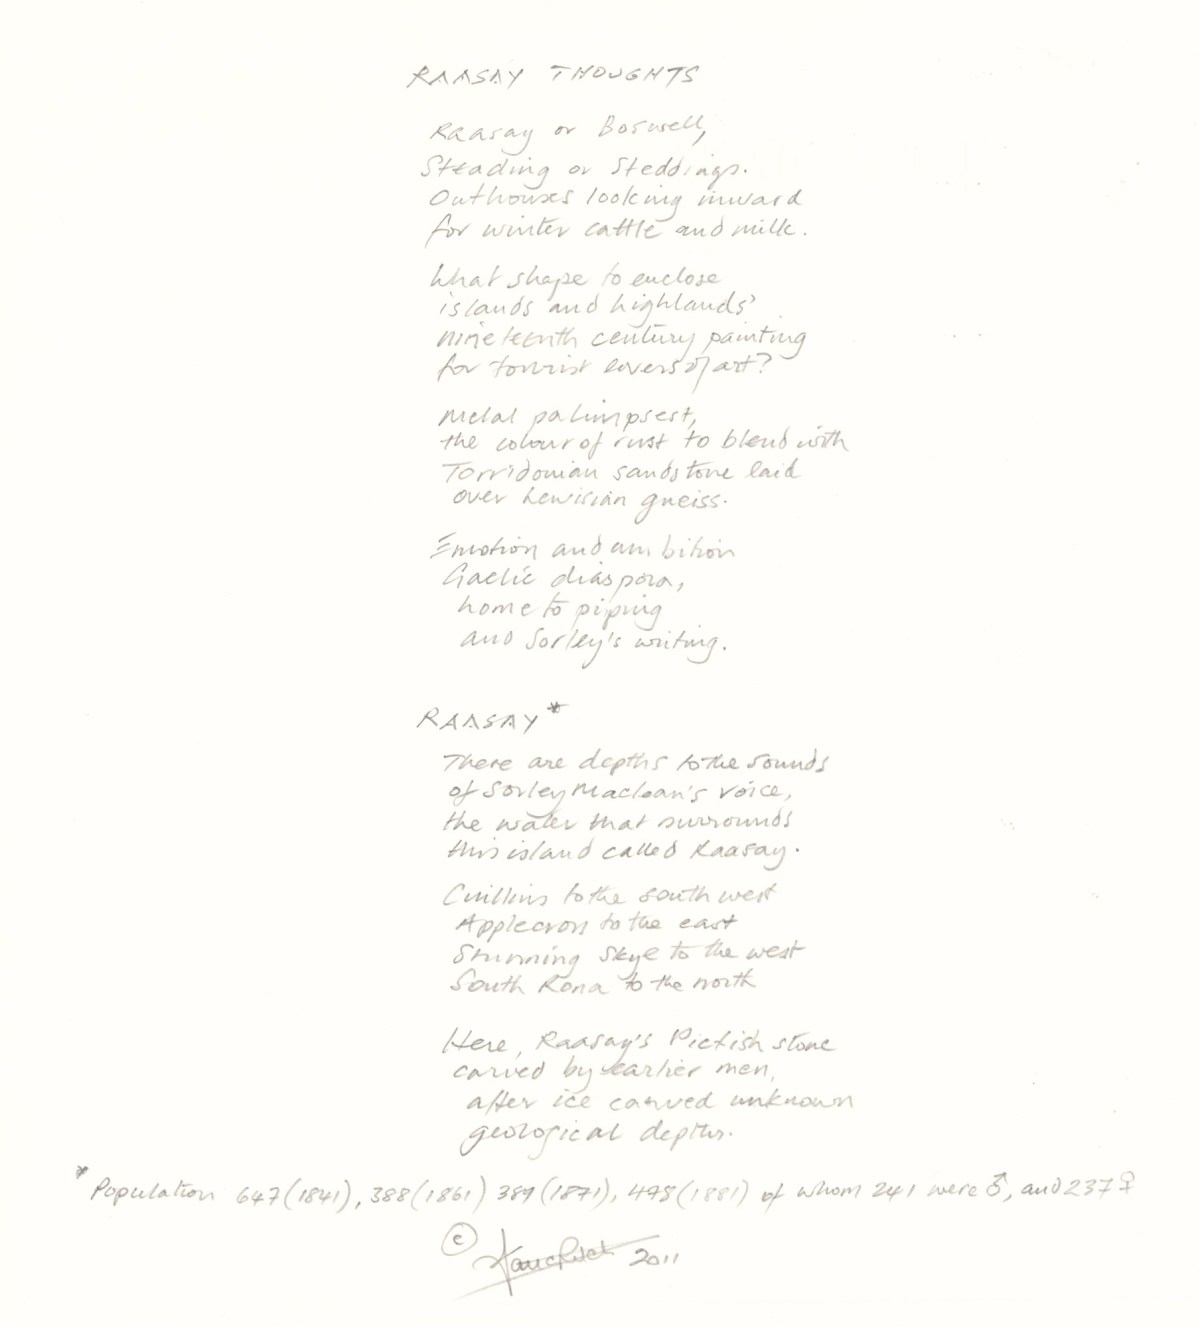 RAASAY THOUGHTS
Raasay or Boswell,
Steading or Steddings.
Outhouses looking inward
for winter cattle and milk.
What shape to enclose
islands and highlands'
nineteenth century painting
for tourist lovers of art?
Metal palimpsest,
the colour of rust to blend with
Torridonian sandstone laid
over Lewisian gneiss.
Emotion and ambition
Gaelic diaspora,
home to piping
and Sorley's writing.
RAASAY*
There are depths to the sounds
of Sorley Maclean's voice,
the water that surrounds
this island called Raasay.
Cuillins to the south west
Applecross to the east
Stunning Skye to the west
South Rona to the north
Here, Raasay's Pictish stone
carved by earlier men,
after ice carved unknown
geological depths.
* Population 647 (1841), 388 (1861) 389 (1871), 478 (1881) of whom 241 were ♂, and 237 ♀
© 2011